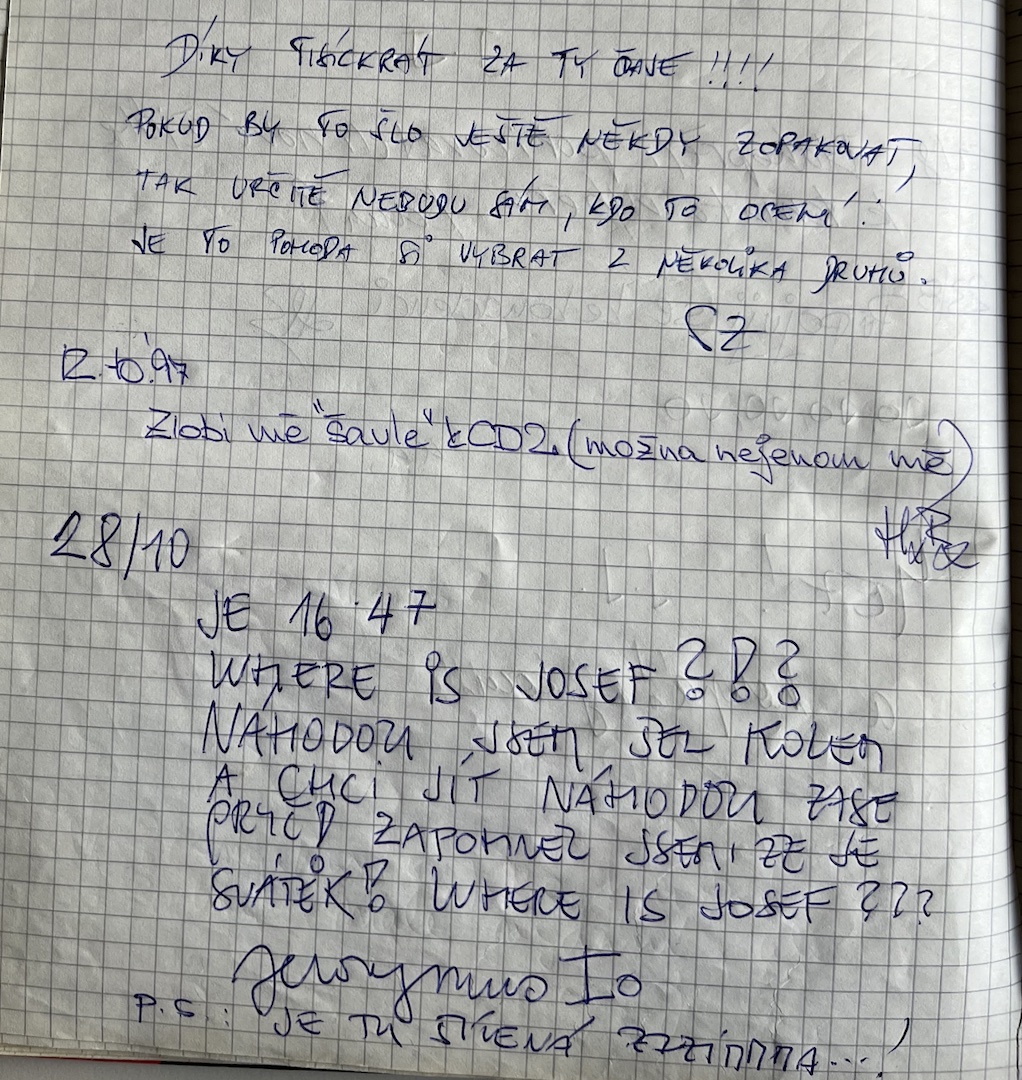 DÍKY TISÍCKRÁT ZA TY ČAJE !!!!
POKUD BY TO ŠLO JEŠTĚ NĚKDY ZOPAKOVAT,
TAK URČITĚ NEBUDU SÁM, KDO TO OCENÍ!
JE TO POHODA SI VYBRAT Z NĚKOLIKA DRUHŮ.
12.10.97
Zlobí mě "šavle" z CD2. (možná nejenom mě)
28/10
JE 16.47
WHERE IS JOSEF ?!?
NÁHODOU JSEM ŠEL KOLEM
A CHCI JÍT NÁHODOU ZASE
PRYČ! ZAPOMNEL JSEM, ZE JE
SVÁTEK! WHERE IS JOSEF ???
Jeronymuo Io
P.S.: JE TU ŠÍLENÁ ZZZÍMMMA...!